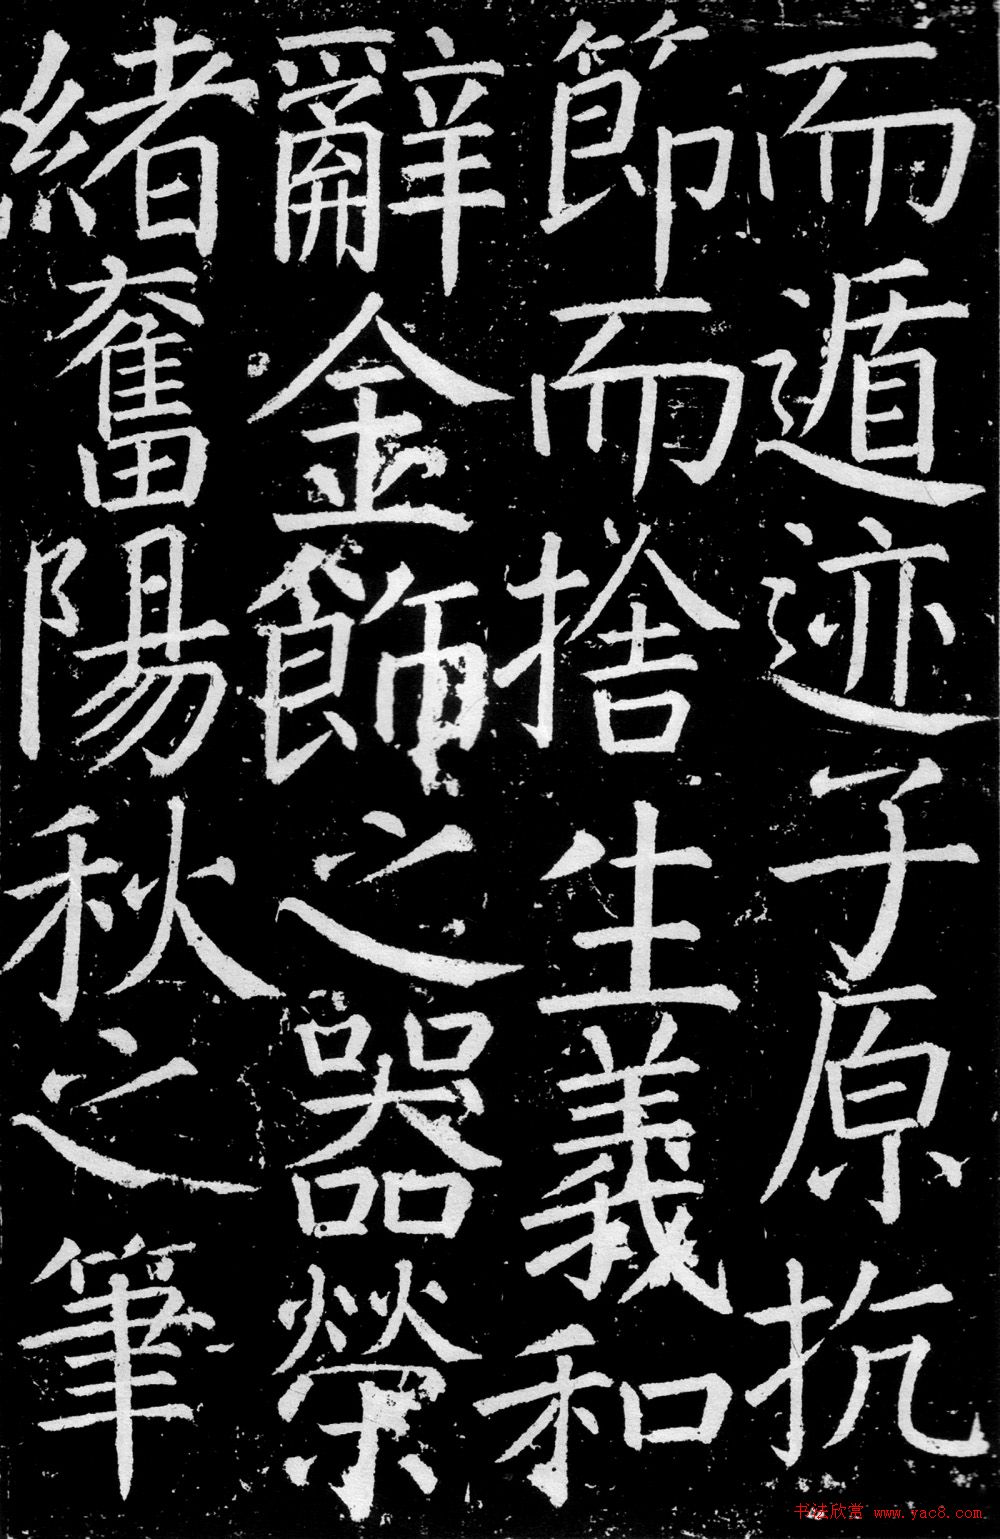 而遁迹子原抗
節而捨生義和
辭金飾之器榮
緒奮陽秋之筆
书法欣赏 www.yac8.com